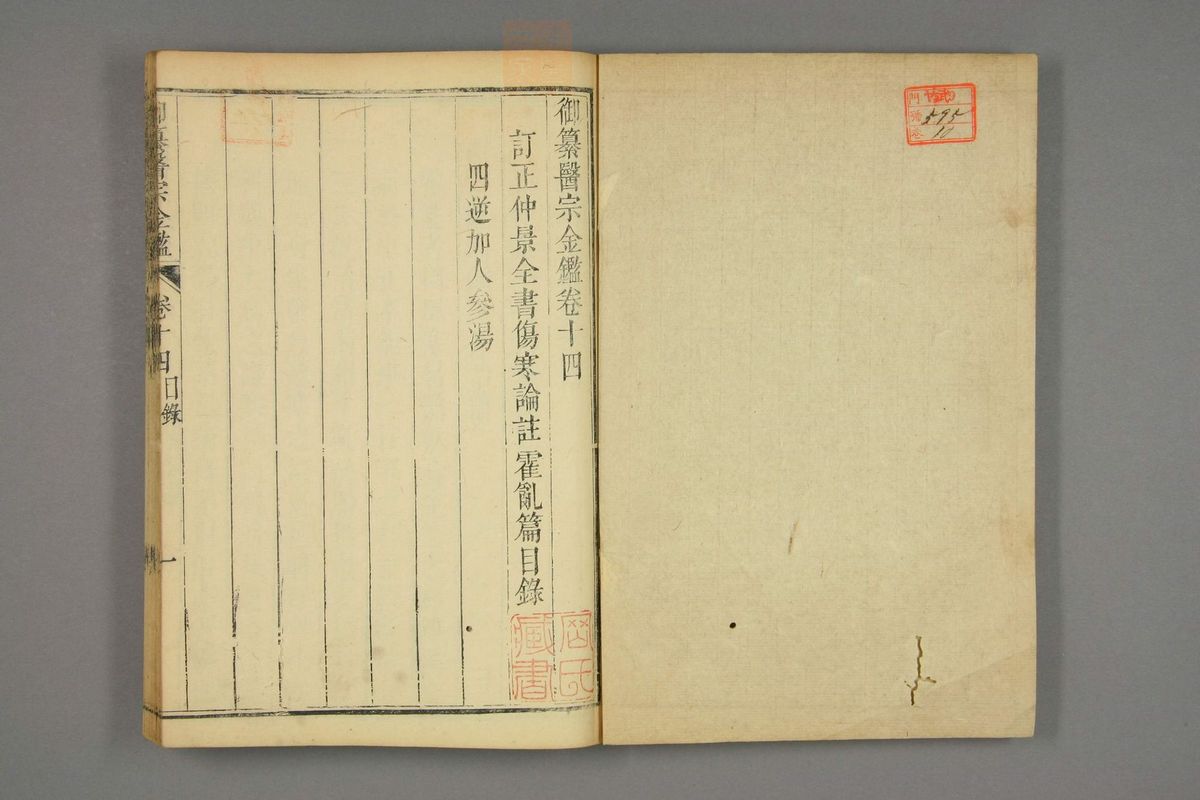 門 號 595
卷 10
御纂醫宗金鑑卷十四
訂正仲景全書傷寒論註霍亂篇目錄
四逆加人參湯
御纂醫宗金鑑 卷十四目錄 一
藏書